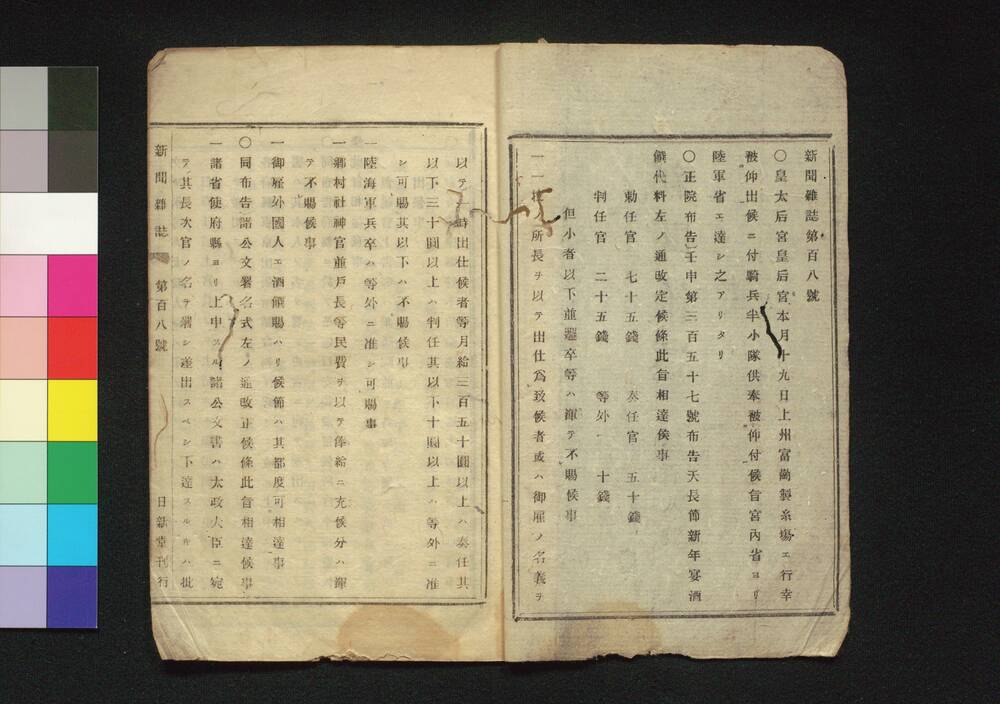 新聞雜誌第百八號
〇皇太后宮皇后宮本月十九日上州富岡製糸塲エ行幸
被仰出候ニ付騎兵半小隊供奉被仰付候旨宮內省ヨリ
陸軍省エ達シ之アリタリ
〇正院布告壬申第三百五十七號布告天長節新年宴酒
饌代料左ノ通改定候條此旨相達候事
勅任官 七十五錢 奏任官 五十錢
判任官 二十五錢 等外 十錢
但小者以下並邏卒等ハ渾テ不賜候事
一 所長ヲ以テ出仕爲致候者或ハ御雇ノ名義ヲ
以テ一時出仕候者等月給三百五十圓以上ハ奏任其
以下三十圓以上ハ判任其以下十圓以上ハ等外ニ准
シ可賜其以下ハ不賜候事
一陸海軍兵卒ハ等外ニ准シ可賜事
一鄕村社神官並戶長等民費ヲ以テ俸給ニ充候分ハ渾
テ不賜候事
一御雇外國人エ酒饌賜ハリ候節ハ其都度可相達事
〇同布告諸公文署名式左ノ通改正候條此旨相達候事
一諸省使府縣ヨリ上申スル諸公文書ハ太政大臣ニ宛
テ其長次官ノ名ヲ署シ差出スベシ下達スルハ批
新聞雜誌 第百八號 日新堂刊行